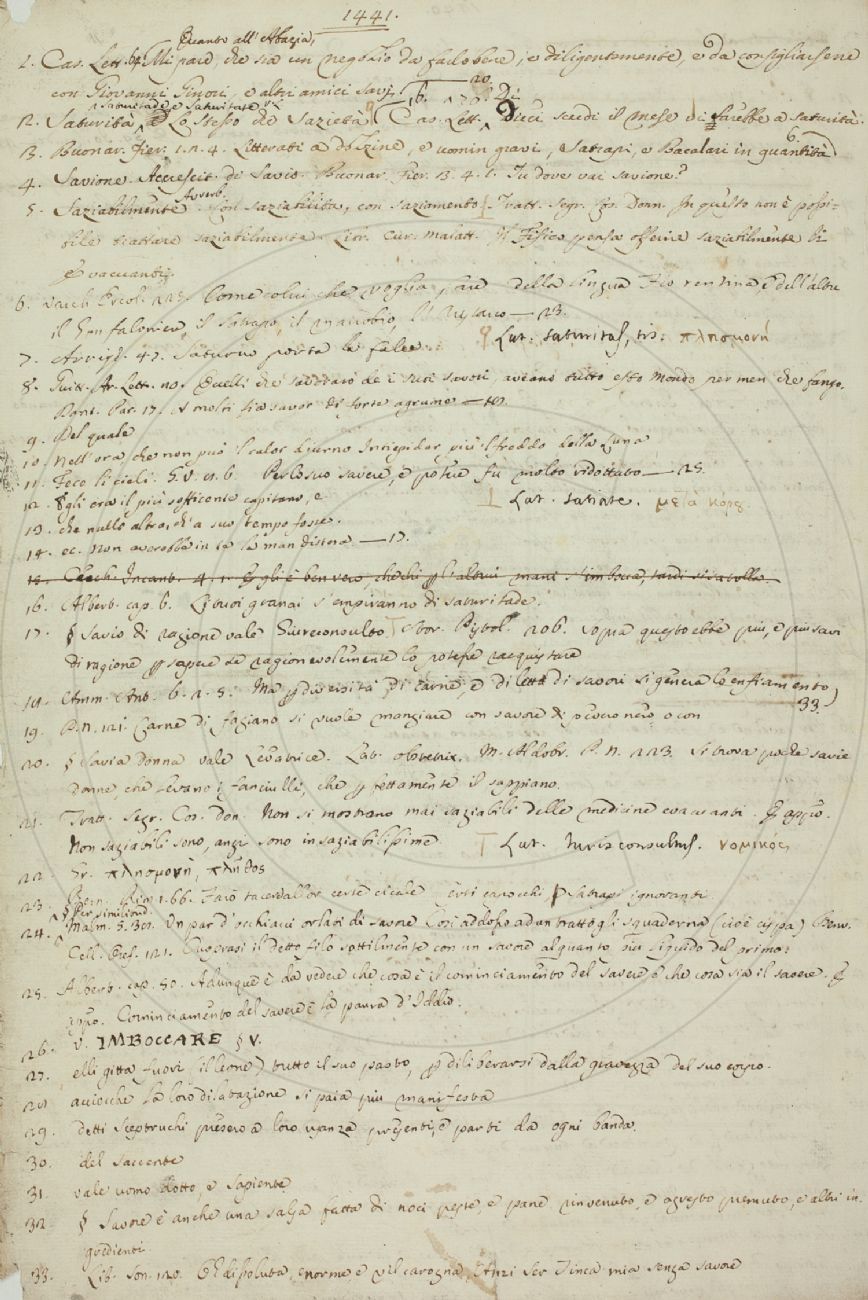 1441.
Quanto all'Abazia,
1. Cas. Lett. 64. Mi pare, che sia un negozio da farlo bene, e diligentemente, e da consigliarsene
con Giovanni Ginori, e altri amici savj. 20.
Saturitade, e Saturitate
12. Saturità, Lo stesso che Sazietà. Cas. Lett. Dieci scudi il mese di sarebbe a saturità.
13. Buonar. Fier. 1. 2. 4. Litterati a dozzine, e uomin gravi, Satrapi, e Bacalari in quantità
4. Savione. Accrescit. di Savio. Buonar. Fier. 3. 4. 1. Tu dove vai Savione?
Avverb.
5. Saziabilmente. Con saziabilità, con saziamento. Tratt. segr. cos. Donn. In questo non è possi-
bile trattare saziabilmente. Libr. cur. malatt. Il Fisico pensa offerire saziabilmente li
evacuanti.
6. Varch. Ercol. 225. Come colui che voglia, fare della lingua Fiorentina, e dell'altre
il Gonfaloniere, il satrapo, il 23.
7. Arrigh. 47. Saturno porta la falce. Lat. saturitas, tis. πλησμονή
8. Guitt. Lett. 10. Quelli che saverano de i suoi savori, aveano tutto esto Mondo per men che fango.
Dant. Par. 17. A molti fia savor di forte agrume
9. Del quale
10. Nell'ora che non può 'l calor diurno Intiepidar più 'l freddo della Luna
11. Fece li cieli. G. V. 11. 6. Per lo suo savere, e potere fu molto ridottato 25.
12. Egli era il più sofficente capitano, e Lat. satiate.
13. che nullo altro, ch'a suo tempo fosse.
14. ec. Non averebbe in te la man distesa 17.
15. Cecchi Incant. 4. 1. Egli è ben vero, che chi per l'altrui mani s'imbocca, tardi si satolla.
16. Albert. cap. 6. Li tuoi granai s'empiranno di saturitade.
17. § Savio di ragione vale Giureconsulto. Stor. Pistol. 206. sopra questo ebbe più, e più savi
di ragione per sapere se ragionevolmente lo potesse racquistare
18. Amm. Ant. 6. 2. 5. Ma per diversità di carne, e diletto di savori si genera lo enfiamento,
33.
19. P. N. 121. Carne di fagiano si vuole mangiare con savore di pevero nero, o con
20. § Savia donna vale Levatrice. Lat. obstetrix. M. Aldobr. P. N. 223. Si trova poche savie
donne, che levano i fanciulli, che perfettamente il sappiano.
21. Tratt. Segr. Cos. don. Non si mostrano mai saziabili delle medicine evacuanti. E appo.
Non saziabili sono, anzi sono insaziabilissime. Lat. Iurisconsultus. νομικός
22. Gr. πλησμονή, πλῆθος
23. Bern. Rim. 1. 66. Farò tacer certe cicale, Certi capocchi, Satrapi ignoranti.
§ Per similitud.
24. Malm. 5. 301. Un par d'occhiacci orlati di savore Così addosso ad un tratto gli squaderna (cioè cispa) Benv.
Cell. Oref. 121. Cuoprasi il detto filo sottilmente con un savore alquanto più liquido del primo.
25. Albert. cap. 50. Adunque è da vedere che cosa è il cominciamento del savere, e che cosa sia il savere. E
appo. Cominciamento del savere è la paura d'Iddio.
26. V. IMBOCCARE § V.
27. elli gitta fuori (il leone) tutto il suo pasto, per diliberarsi dalla gravezza del suo corpo.
28. acciocchè la loro dilatazione si paia più manifesta
29. detti Sceptruchi presero a loro usanza presenti, e parti da ogni banda.
30. del saccente
31. vale uomo dotto, e sapiente
32. § Savore è anche una salsa fatta di noci peste, e pane rinvenuto, e agresto premuto, e altri in-
gredienti
33. Lib. Son. 120. O dissoluta, enorme e vil carogna, Anzi Ser Tinca mia senza savore